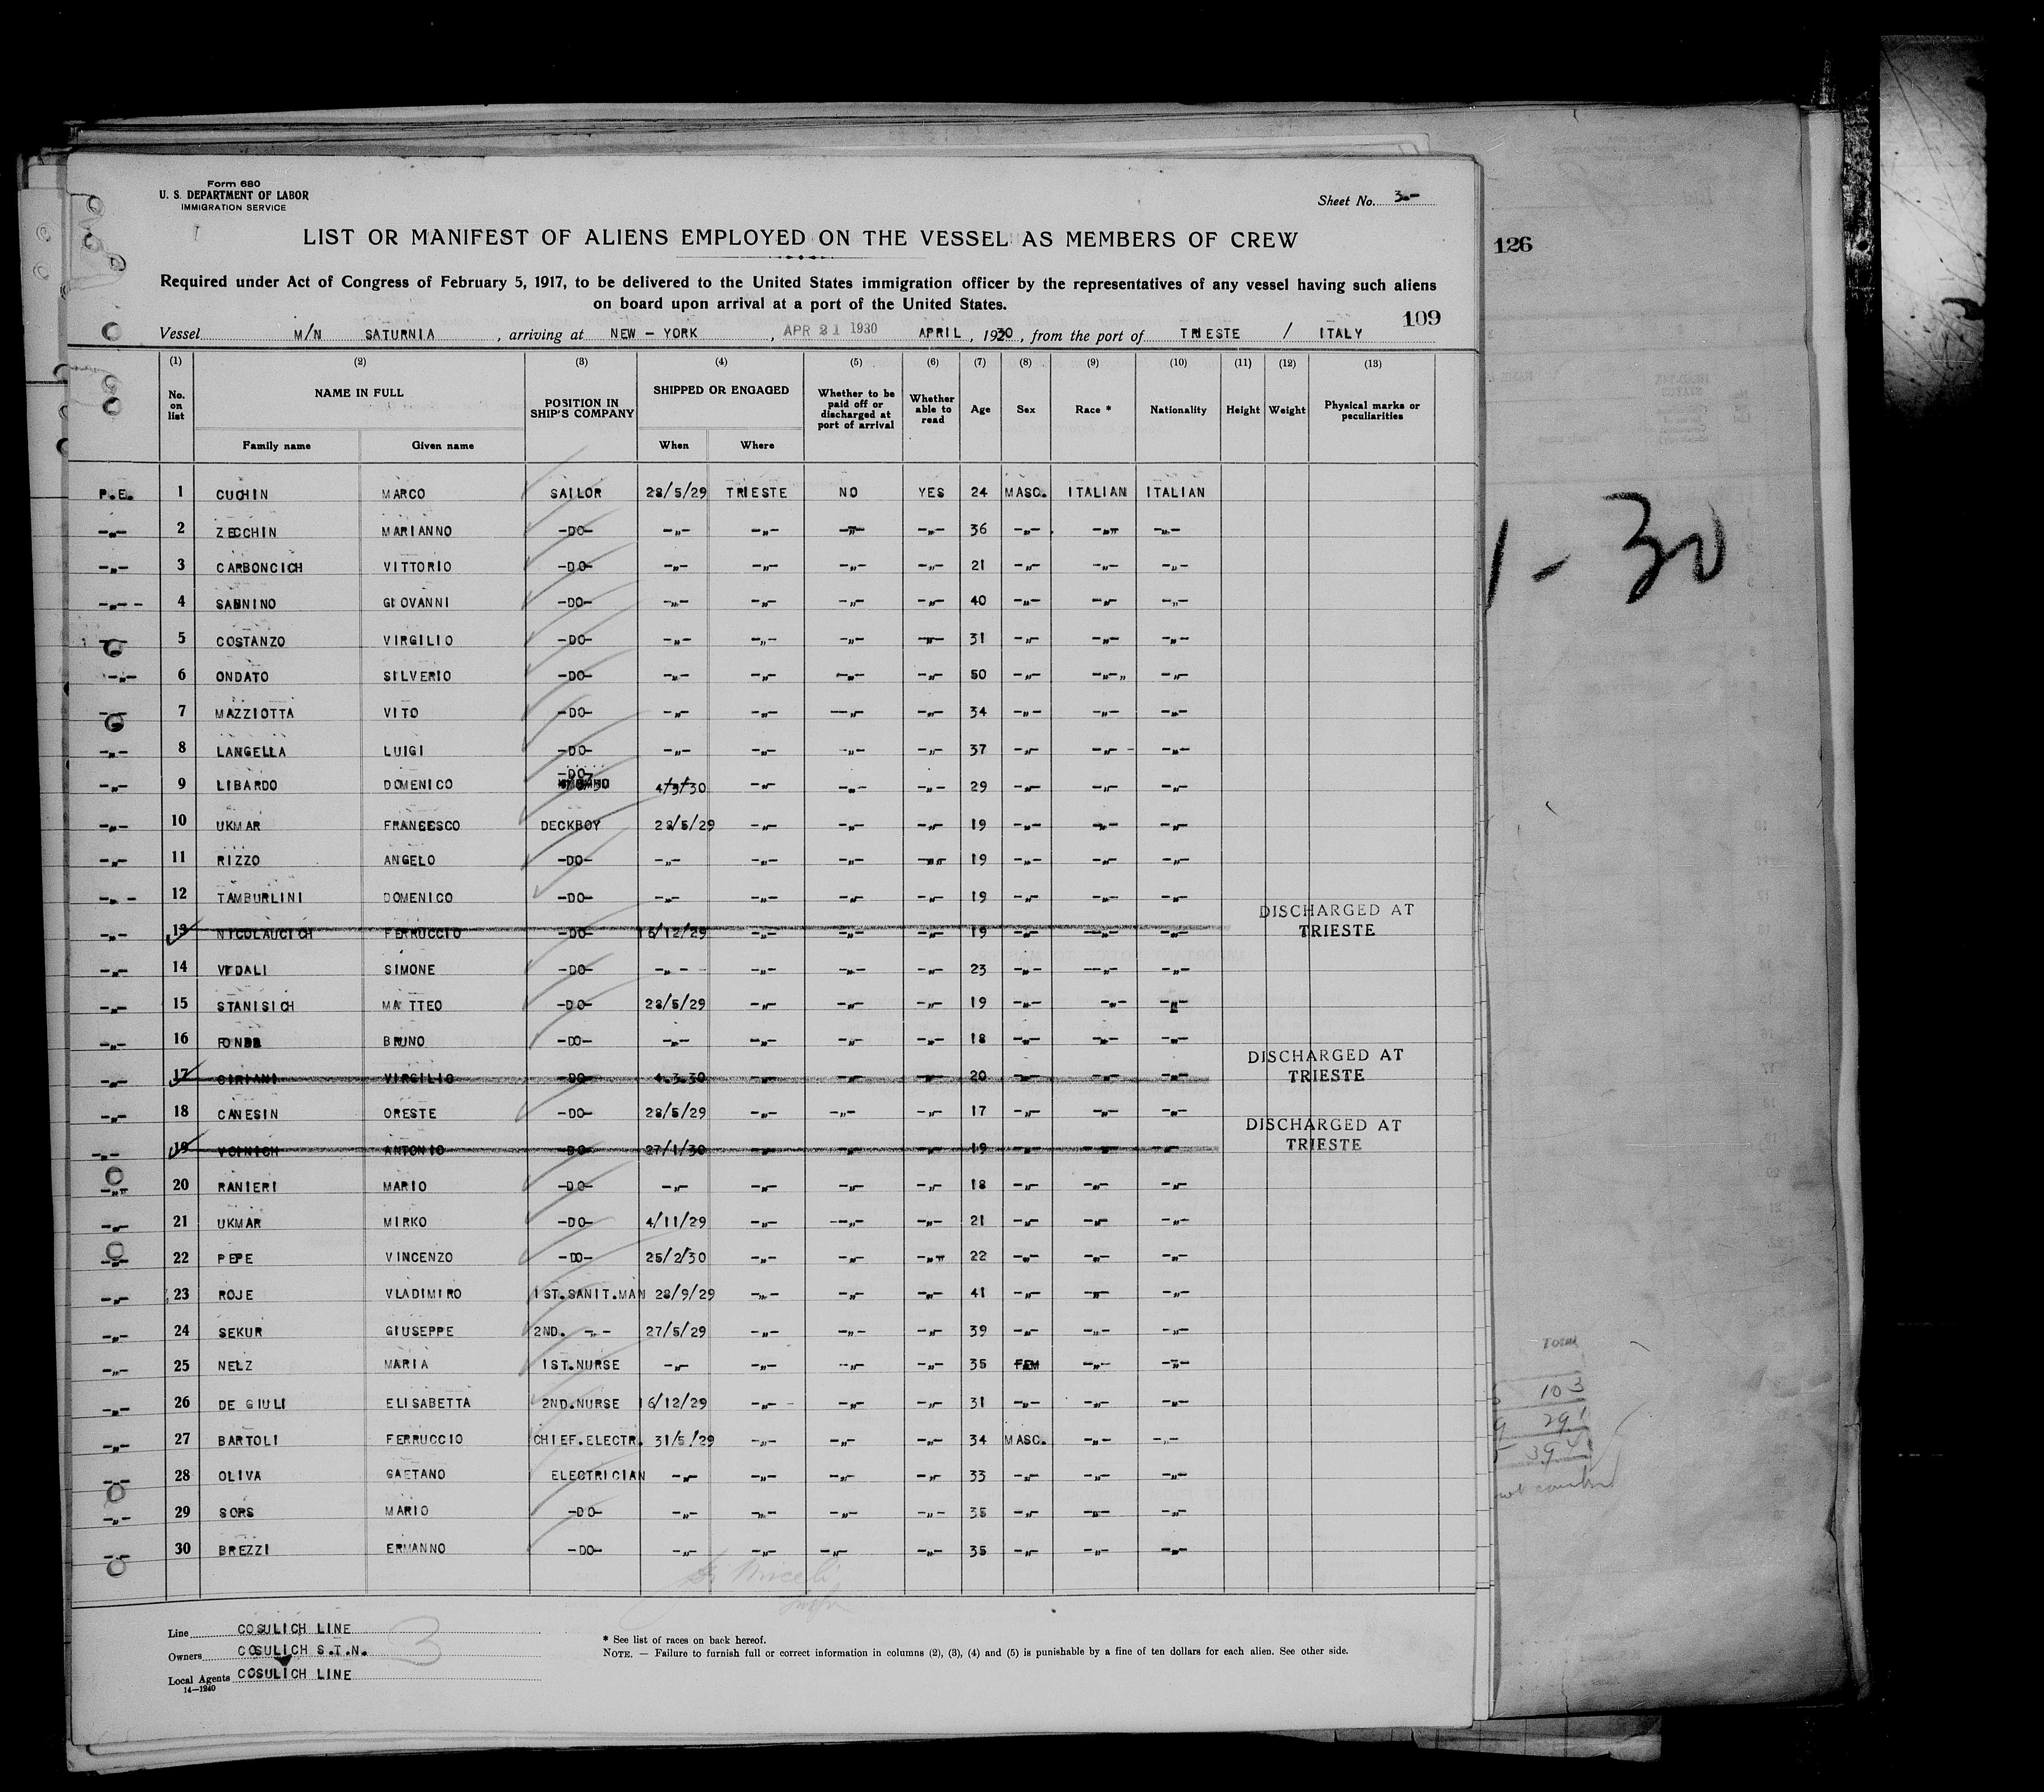 Form 680
U. S. DEPARTMENT OF LABOR
IMMIGRATION SERVICE
Sheet No. 3-
LIST OR MANIFEST OF ALIENS EMPLOYED ON THE VESSEL AS MEMBERS OF CREW
126
Required under Act of Congress of February 5, 1917, to be delivered to the United States immigration officer by the representatives of any vessel having such aliens
on board upon arrival at a port of the United States.
109
Vessel M/N SATURNIA , arriving at NEW-YORK , APR 21 1930 APRIL , 1930 , from the port of TRIESTE / ITALY
(1) (2) (3) (4) (5) (6) (7) (8) (9) (10) (11) (12) (13)
No. on list NAME IN FULL Family name Given name POSITION IN SHIP'S COMPANY SHIPPED OR ENGAGED When Where Whether to be paid off or discharged at port of arrival Whether able to read Age Sex Race * Nationality Height Weight Physical marks or peculiarities
P.E. 1 CUCHIN MARCO SAILOR 28/5/29 TRIESTE NO YES 24 MASC. ITALIAN ITALIAN
-"- 2 ZECCHIN MARIANNO -DO- -"- -"- -"- -"- 36 -"- -"- -"-
-"- 3 CARBONCICH VITTORIO -DO- -"- -"- -"- -"- 21 -"- -"- -"-
-"- 4 SANNINO GIOVANNI -DO- -"- -"- -"- -"- 40 -"- -"- -"-
-"- 5 COSTANZO VIRGILIO -DO- -"- -"- -"- -"- 31 -"- -"- -"-
-"- 6 ONDATO SILVERIO -DO- -"- -"- -"- -"- 50 -"- -"- -"-
-"- 7 MAZZIOTTA VITO -DO- -"- -"- -"- -"- 34 -"- -"- -"-
-"- 8 LANGELLA LUIGI -DO- -"- -"- -"- -"- 37 -"- -"- -"-
-"- 9 LIBARDO DOMENICO -DO- 4/3/30 -"- -"- -"- 29 -"- -"- -"-
-"- 10 UKMAR FRANCESCO DECKBOY 28/5/29 -"- -"- -"- 19 -"- -"- -"-
-"- 11 RIZZO ANGELO -DO- -"- -"- -"- -"- 19 -"- -"- -"-
-"- 12 TAMBURLINI DOMENICO -DO- -"- -"- -"- -"- 19 -"- -"- -"-
-"- 13 NICOLAUCICH FERRUCCIO -DO- 16/12/29 -"- -"- -"- 19 -"- -"- -"- DISCHARGED AT TRIESTE
-"- 14 VEDALI SIMONE -DO- -"- -"- -"- -"- 23 -"- -"- -"-
-"- 15 STANISICH MATTEO -DO- 28/5/29 -"- -"- -"- 19 -"- -"- -"-
-"- 16 BRUNO -DO- -"- -"- -"- -"- 18 -"- -"- -"-
-"- 17 CIRIANI VIRGILIO -DO- 4.3.30 -"- -"- -"- 20 -"- -"- -"- DISCHARGED AT TRIESTE
-"- 18 CANESIN ORESTE -DO- 28/5/29 -"- -"- -"- 17 -"- -"- -"-
-"- 19 VOINICH ANTONIO -DO- 27/1/30 -"- -"- -"- 19 -"- -"- -"- DISCHARGED AT TRIESTE
-"- 20 RANIERI MARIO -DO- -"- -"- -"- -"- 18 -"- -"- -"-
-"- 21 UKMAR MIRKO -DO- 4/11/29 -"- -"- -"- 21 -"- -"- -"-
-"- 22 PEPE VINCENZO -DO- 25/2/30 -"- -"- -"- 22 -"- -"- -"-
-"- 23 ROJE VLADIMIRO 1ST.SANIT.MAN 28/9/29 -"- -"- -"- 41 -"- -"- -"-
-"- 24 SEKUR GIUSEPPE 2ND. -"- 27/5/29 -"- -"- -"- 39 -"- -"- -"-
-"- 25 NELZ MARIA 1ST.NURSE -"- -"- -"- -"- 35 FEM -"- -"-
-"- 26 DE GIULI ELISABETTA 2ND.NURSE 16/12/29 -"- -"- -"- 31 -"- -"- -"-
-"- 27 BARTOLI FERRUCCIO CHIEF.ELECTR. 31/5/29 -"- -"- -"- 34 MASC. -"- -"-
-"- 28 OLIVA GAETANO ELECTRICIAN -"- -"- -"- -"- 33 -"- -"- -"-
-"- 29 SORS MARIO -DO- -"- -"- -"- -"- 35 -"- -"- -"-
-"- 30 BREZZI ERMANNO -DO- -"- -"- -"- -"- 35 -"- -"- -"-
1-30
Total
103
291
394
Line COSULICH LINE
Owners COSULICH S.T.N.
Local Agents COSULICH LINE
14-1240
3
* See list of races on back hereof.
NOTE. — Failure to furnish full or correct information in columns (2), (3), (4) and (5) is punishable by a fine of ten dollars for each alien. See other side.